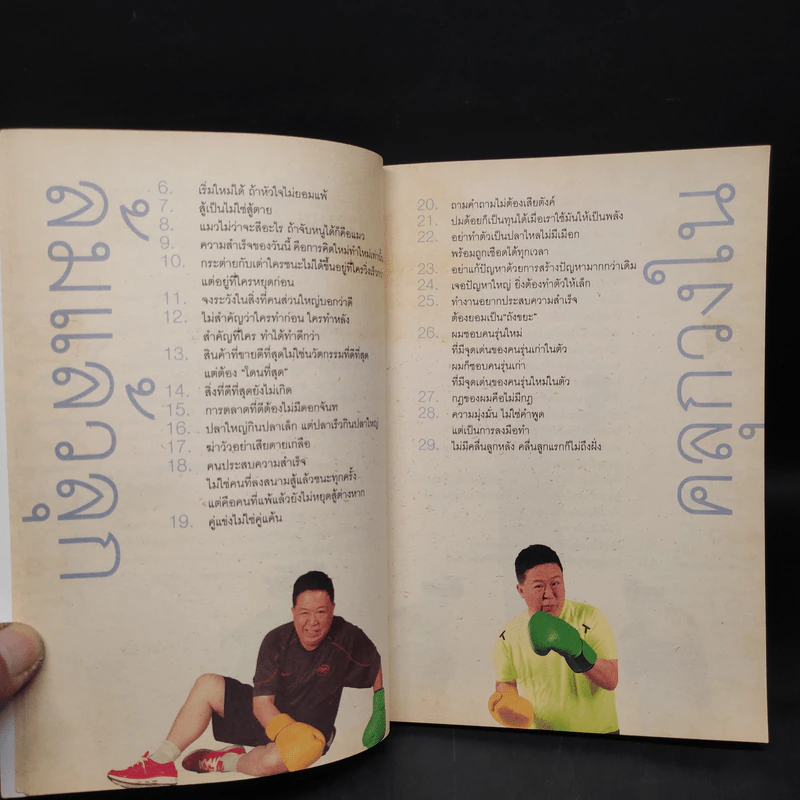 ล้มแล้วลุก
6. เริ่มใหม่ได้ ถ้าหัวใจไม่ยอมแพ้
7. สู้เป็นไม่ใช่สู้ตาย
8. แมวไม่ว่าจะสีอะไร ถ้าจับหนูได้ก็คือแมว
9. ความสำเร็จของวันนี้ คือการคิดใหม่ทำใหม่เท่านั้น
10. กระต่ายกับเต่าใครชนะไม่ได้ขึ้นอยู่ที่ใครวิ่งเร็วกว่า
แต่อยู่ที่ใครหยุดก่อน
11. จงระวังในสิ่งที่คนส่วนใหญ่บอกว่าดี
12. ไม่สำคัญว่าใครทำก่อน ใครทำหลัง
สำคัญที่ใคร ทำได้ทำดีกว่า
13. สินค้าที่ขายดีที่สุดไม่ใช่นวัตกรรมที่ดีที่สุด
แต่ต้อง “โดนที่สุด”
14. สิ่งที่ดีที่สุดยังไม่เกิด
15. การตลาดที่ดีต้องไม่มีดอกจันท
16. ปลาใหญ่กินปลาเล็ก แต่ปลาเร็วกินปลาใหญ่
17. ฆ่าวัวอย่าเสียดายเกลือ
18. คนประสบความสำเร็จ
ไม่ใช่คนที่ลงสนามสู้แล้วชนะทุกครั้ง
แต่คือคนที่แพ้แล้วยังไม่หยุดสู้ต่างหาก
19. คู่แข่งไม่ใช่คู่แค้น
20. ถามคำถามไม่ต้องเสียตังค์
21. ปมด้อยก็เป็นทุนได้เมื่อเราใช้มันให้เป็นพลัง
22. อย่าทำตัวเป็นปลาไหลไม่มีเมือก
พร้อมถูกเชือดได้ทุกเวลา
23. อย่าแก้ปัญหาด้วยการสร้างปัญหามากกว่าเดิม
24. เจอปัญหาใหญ่ ยิ่งต้องทำตัวให้เล็ก
25. ทำงานอยากประสบความสำเร็จ
ต้องยอมเป็น “ถังขยะ”
26. ผมชอบคนรุ่นใหม่
ที่มีจุดเด่นของคนรุ่นเก่าในตัว
ผมก็ชอบคนรุ่นเก่า
ที่มีจุดเด่นของคนรุ่นใหม่ในตัว
27. กฎของผมคือไม่มีกฎ
28. ความมุ่งมั่น ไม่ใช่คำพูด
แต่เป็นการลงมือทำ
29. ไม่มีคลื่นลูกหลัง คลื่นลูกแรกก็ไม่ถึงฝั่ง